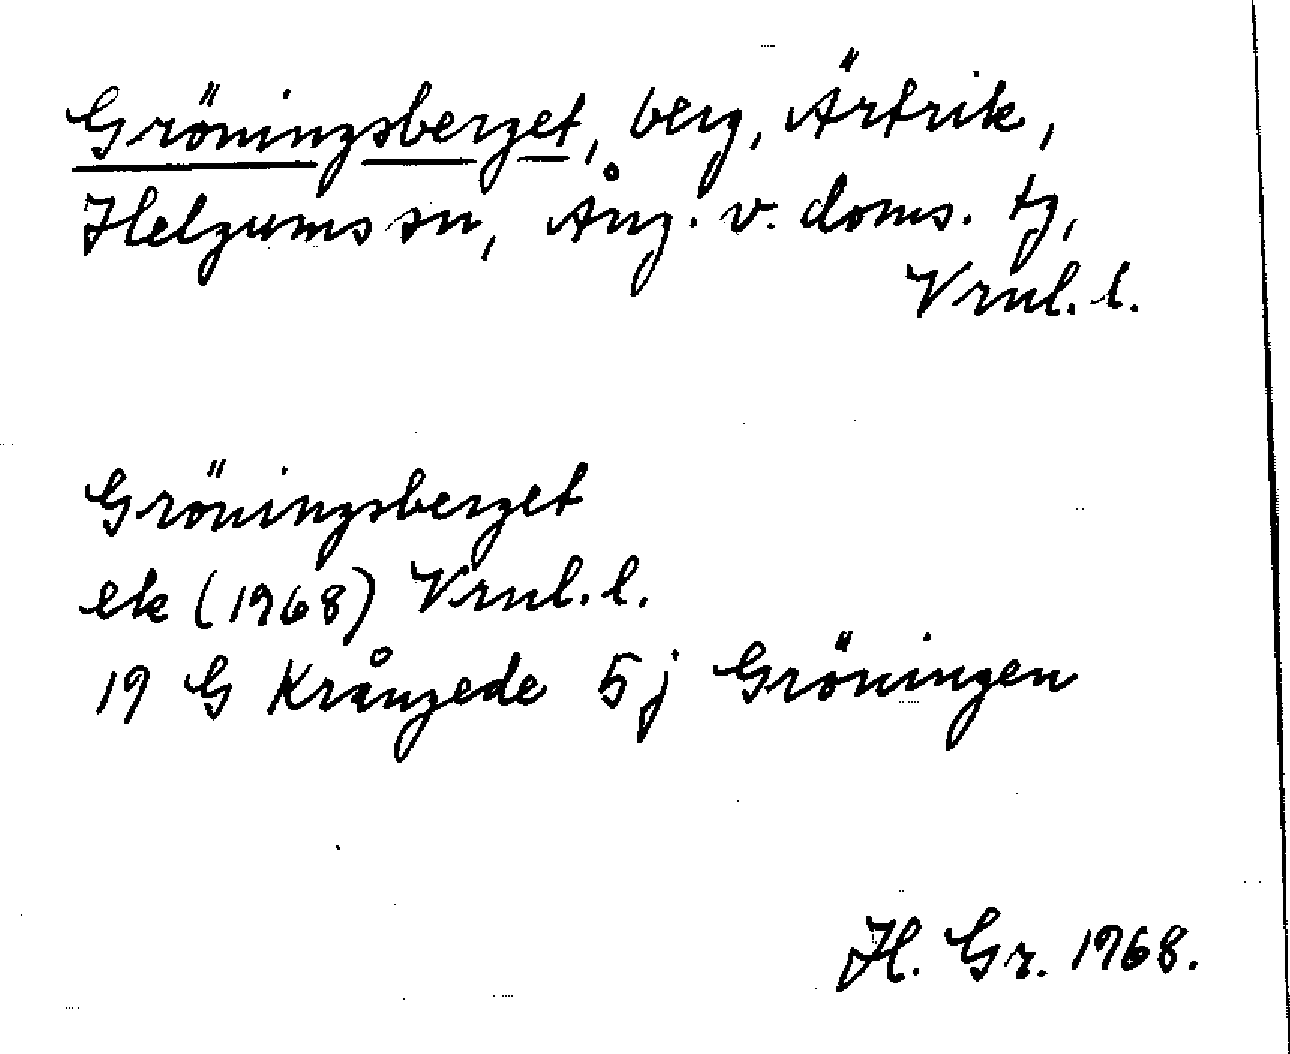 Gröningsberget, berg, Ärtrik,
Helgums sn, Ång. v. doms. tg,
Vrnl. l.
Gröningsberget
ek (1968) Vrnl. l.
19 G Krångede 5j Gröningen
H. Gr. 1968.